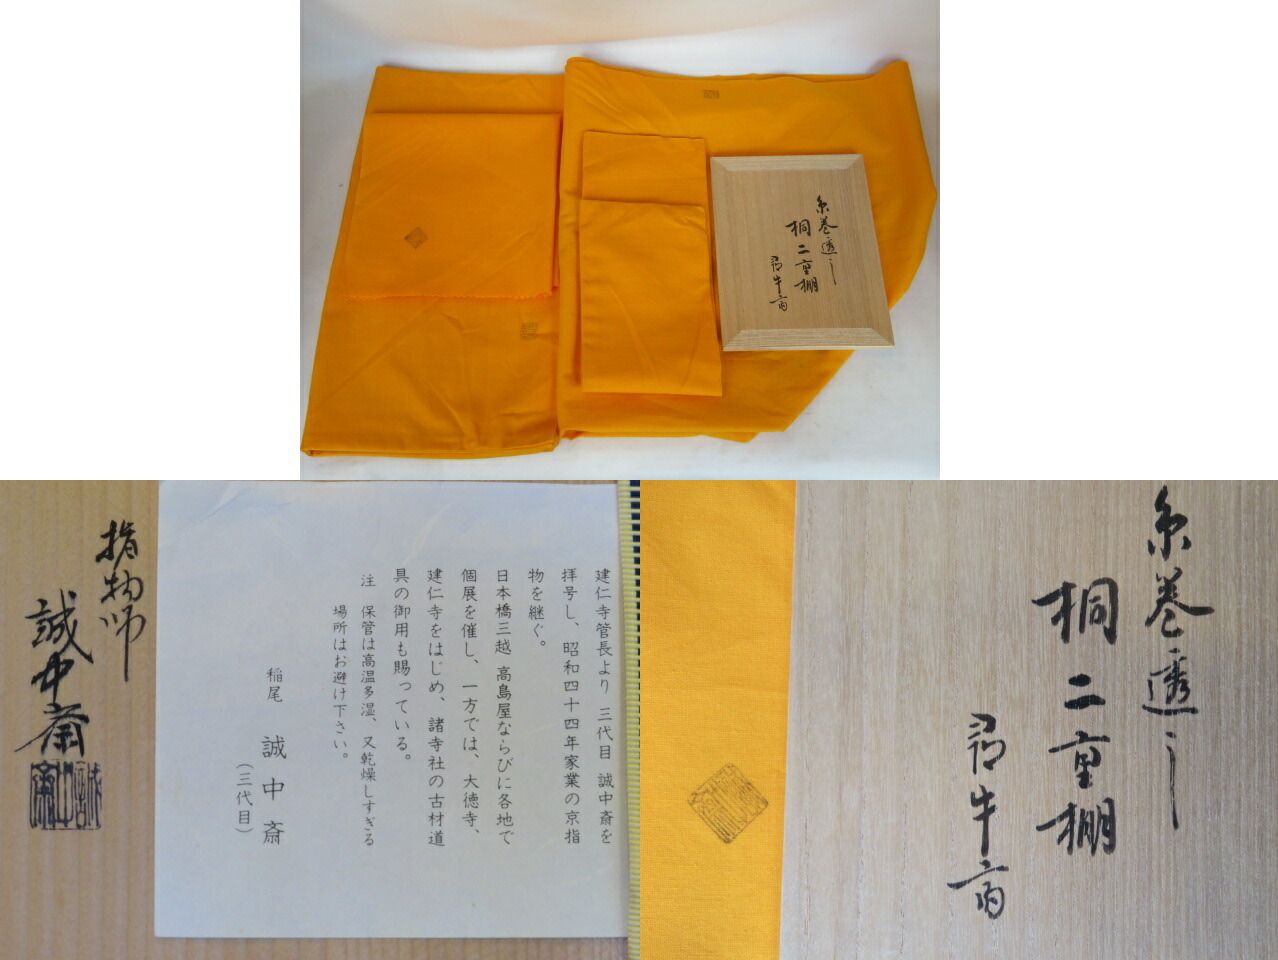 糸巻透し
桐二重棚
尋牛斎
指物師
誠中斎
建仁寺管長より 三代目 誠中斎を
拝号し、昭和四十四年家業の京指
物を継ぐ。
日本橋三越 高島屋ならびに各地で
個展を催し、一方では、大徳寺、
建仁寺をはじめ、諸寺社の古材道
具の御用も賜っている。
注 保管は高温多湿、又乾燥しすぎる
場所はお避け下さい。
稲尾 誠中斎
(三代目)
糸巻透し
桐二重棚
尋牛斎